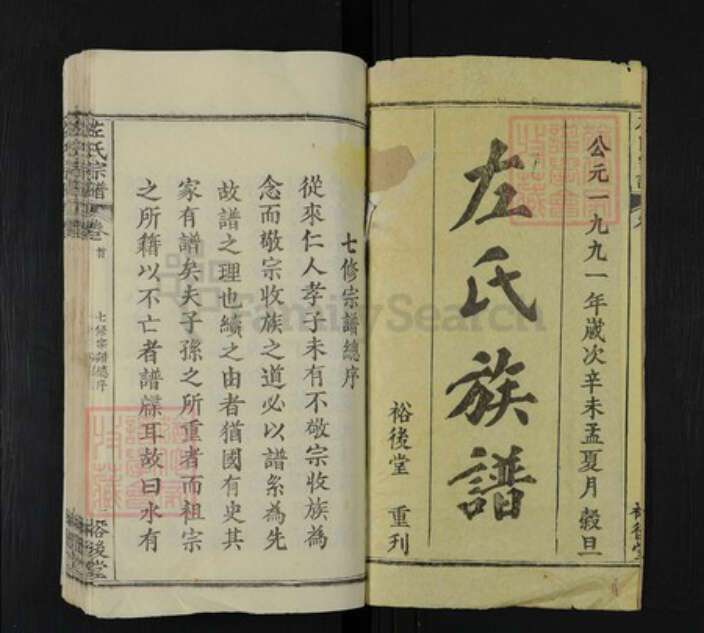 公元一九九一年歲次辛未孟夏月 穀旦
左氏族譜
裕後堂 重列
七修宗譜總序
從來仁人孝子未有不敬宗收族為
念而敬宗收族之道必以譜系為先
故譜之理也續之由者猶國有史其
家有譜矣夫子孫之所重者而祖宗
之所藉以不亡者譜牒耳故曰水有
左氏宗譜
卷首
七修宗譜總序
裕後堂
FamilySearch